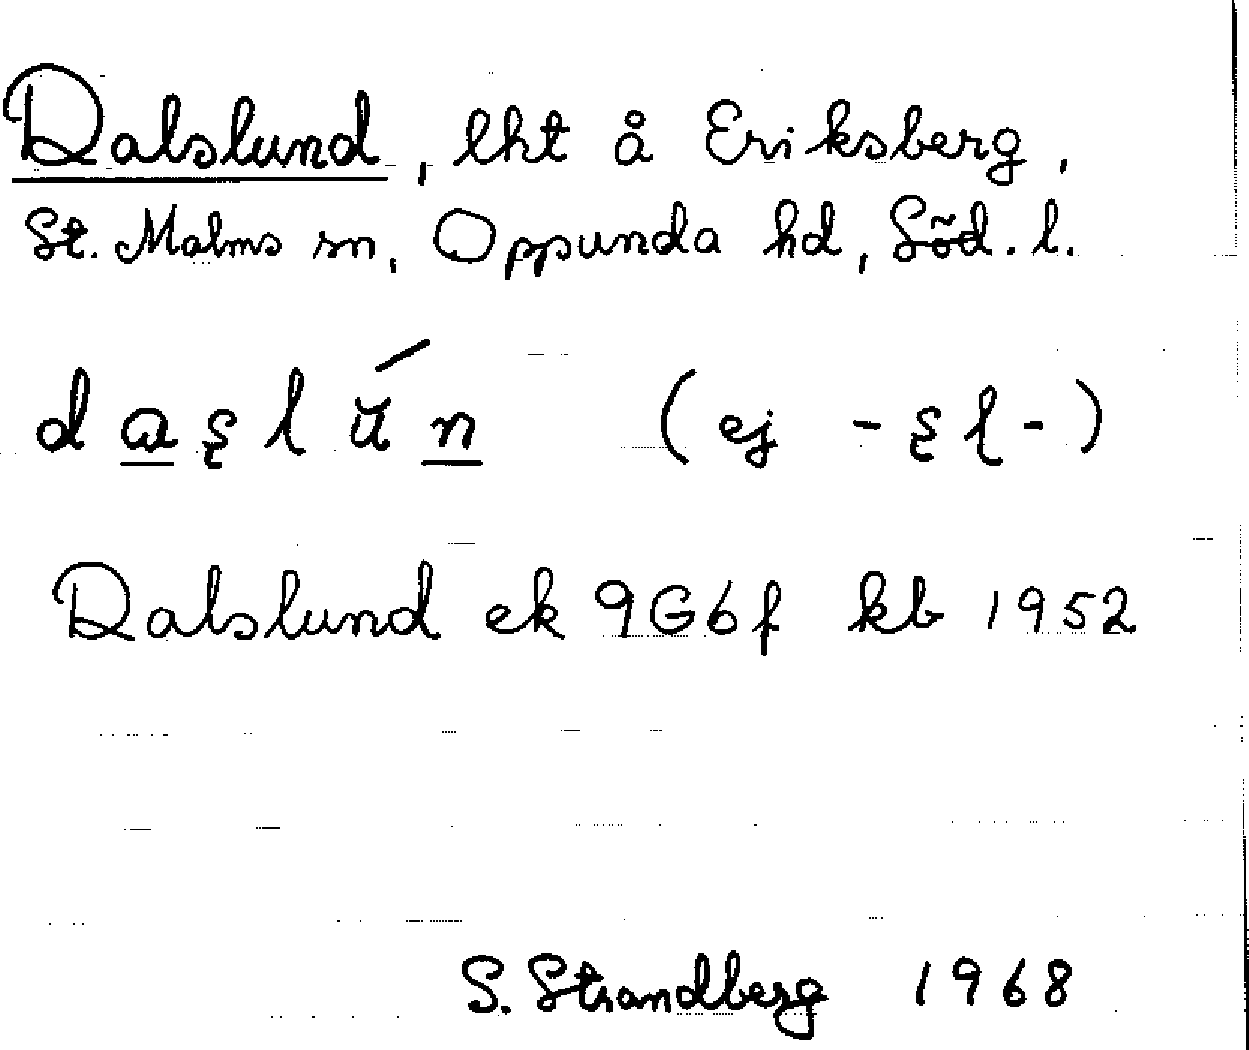 Dalslund, lht å Eriksberg,
St. Malms sn, Oppunda hd, Söd. l.
da̲ʂlŭ́n̲ (ej -ʂɭ-)
Dalslund ek 9G6f kb 1952
S. Strandberg 1968